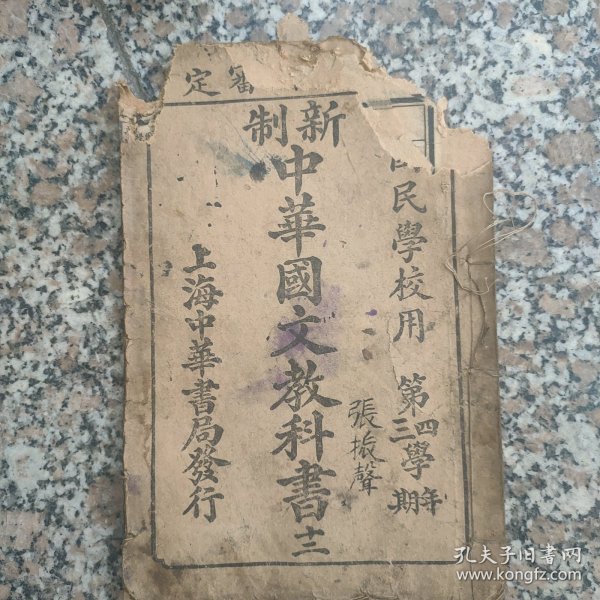 審定
國民學校用 第四學年三學期
新制
中華國文教科書十二
張振聲
上海中華書局發行
孔夫子旧书网
www.kongfz.com